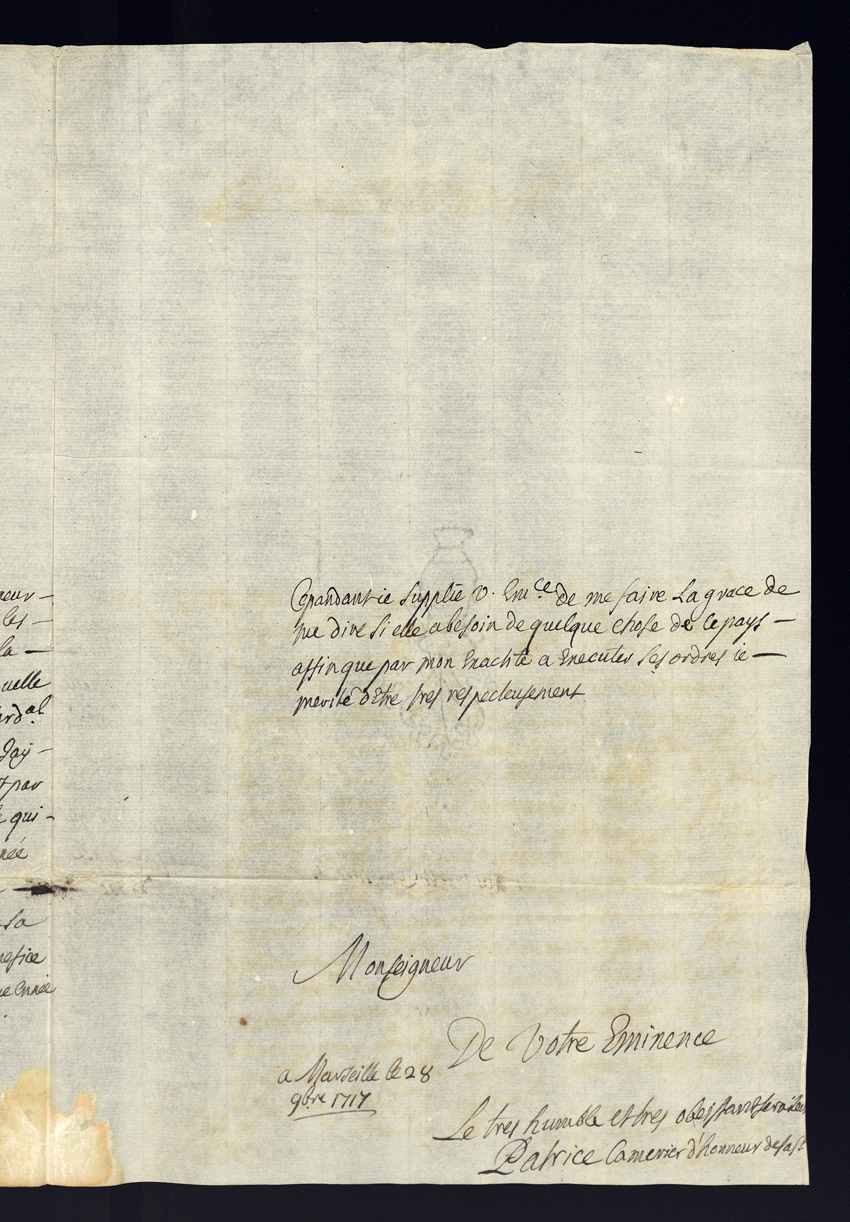 neur –
les –
la –
uelle
ard.al
Jaÿ –
t par
qui –
née
sa
nefice
ie Année
Cepandant ie Supplie V. Em.ce de me faire La grace de
me dire Si elle a besoin de quelque chose de ce pays –
affin que par mon Exactité a Executer Ses ordres ie –
merite d'Etre tres respecteusement
Monseigneur
De Votre Eminence
a Marseille le 28
9bre 1717
Le tres humble et tres obeissant serviteur
Patrice Camerier d'honneur de sa St